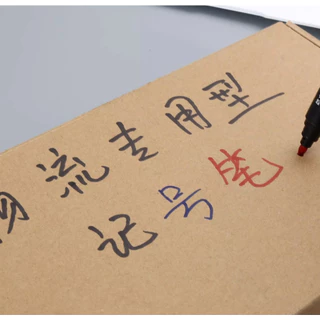 物流专用型
记号笔